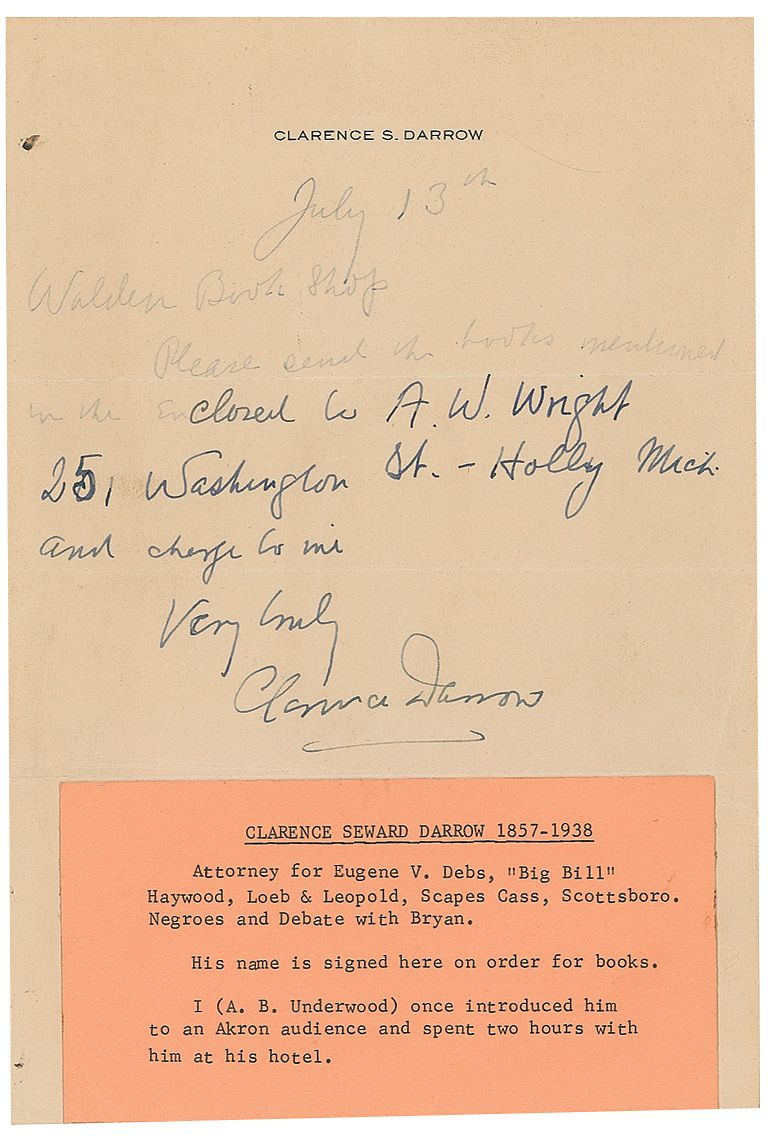 CLARENCE S. DARROW
July 13th
Walden Book Shop
Please send the books mentioned
in the Enclosed to A. W. Wright
251 Washington St. - Holly Mich.
and charge to me
Very truly
Clarence Darrow
CLARENCE SEWARD DARROW 1857-1938
Attorney for Eugene V. Debs, "Big Bill"
Haywood, Loeb & Leopold, Scapes Cass, Scottsboro.
Negroes and Debate with Bryan.
His name is signed here on order for books.
I (A. B. Underwood) once introduced him
to an Akron audience and spent two hours with
him at his hotel.